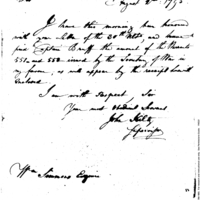 Sir
August 2d 1795
I have this morning been honored
with your letter of the 30th Ulto. and have
paid Captain Bruff the amount of the Warrants
551 and 552 issued by the Secretary of War in
my favor, as will appear by the receipt herewith
Inclosed
I am with respect, Sir
Your most obedient Servant
John
Wm Simmons Esquire